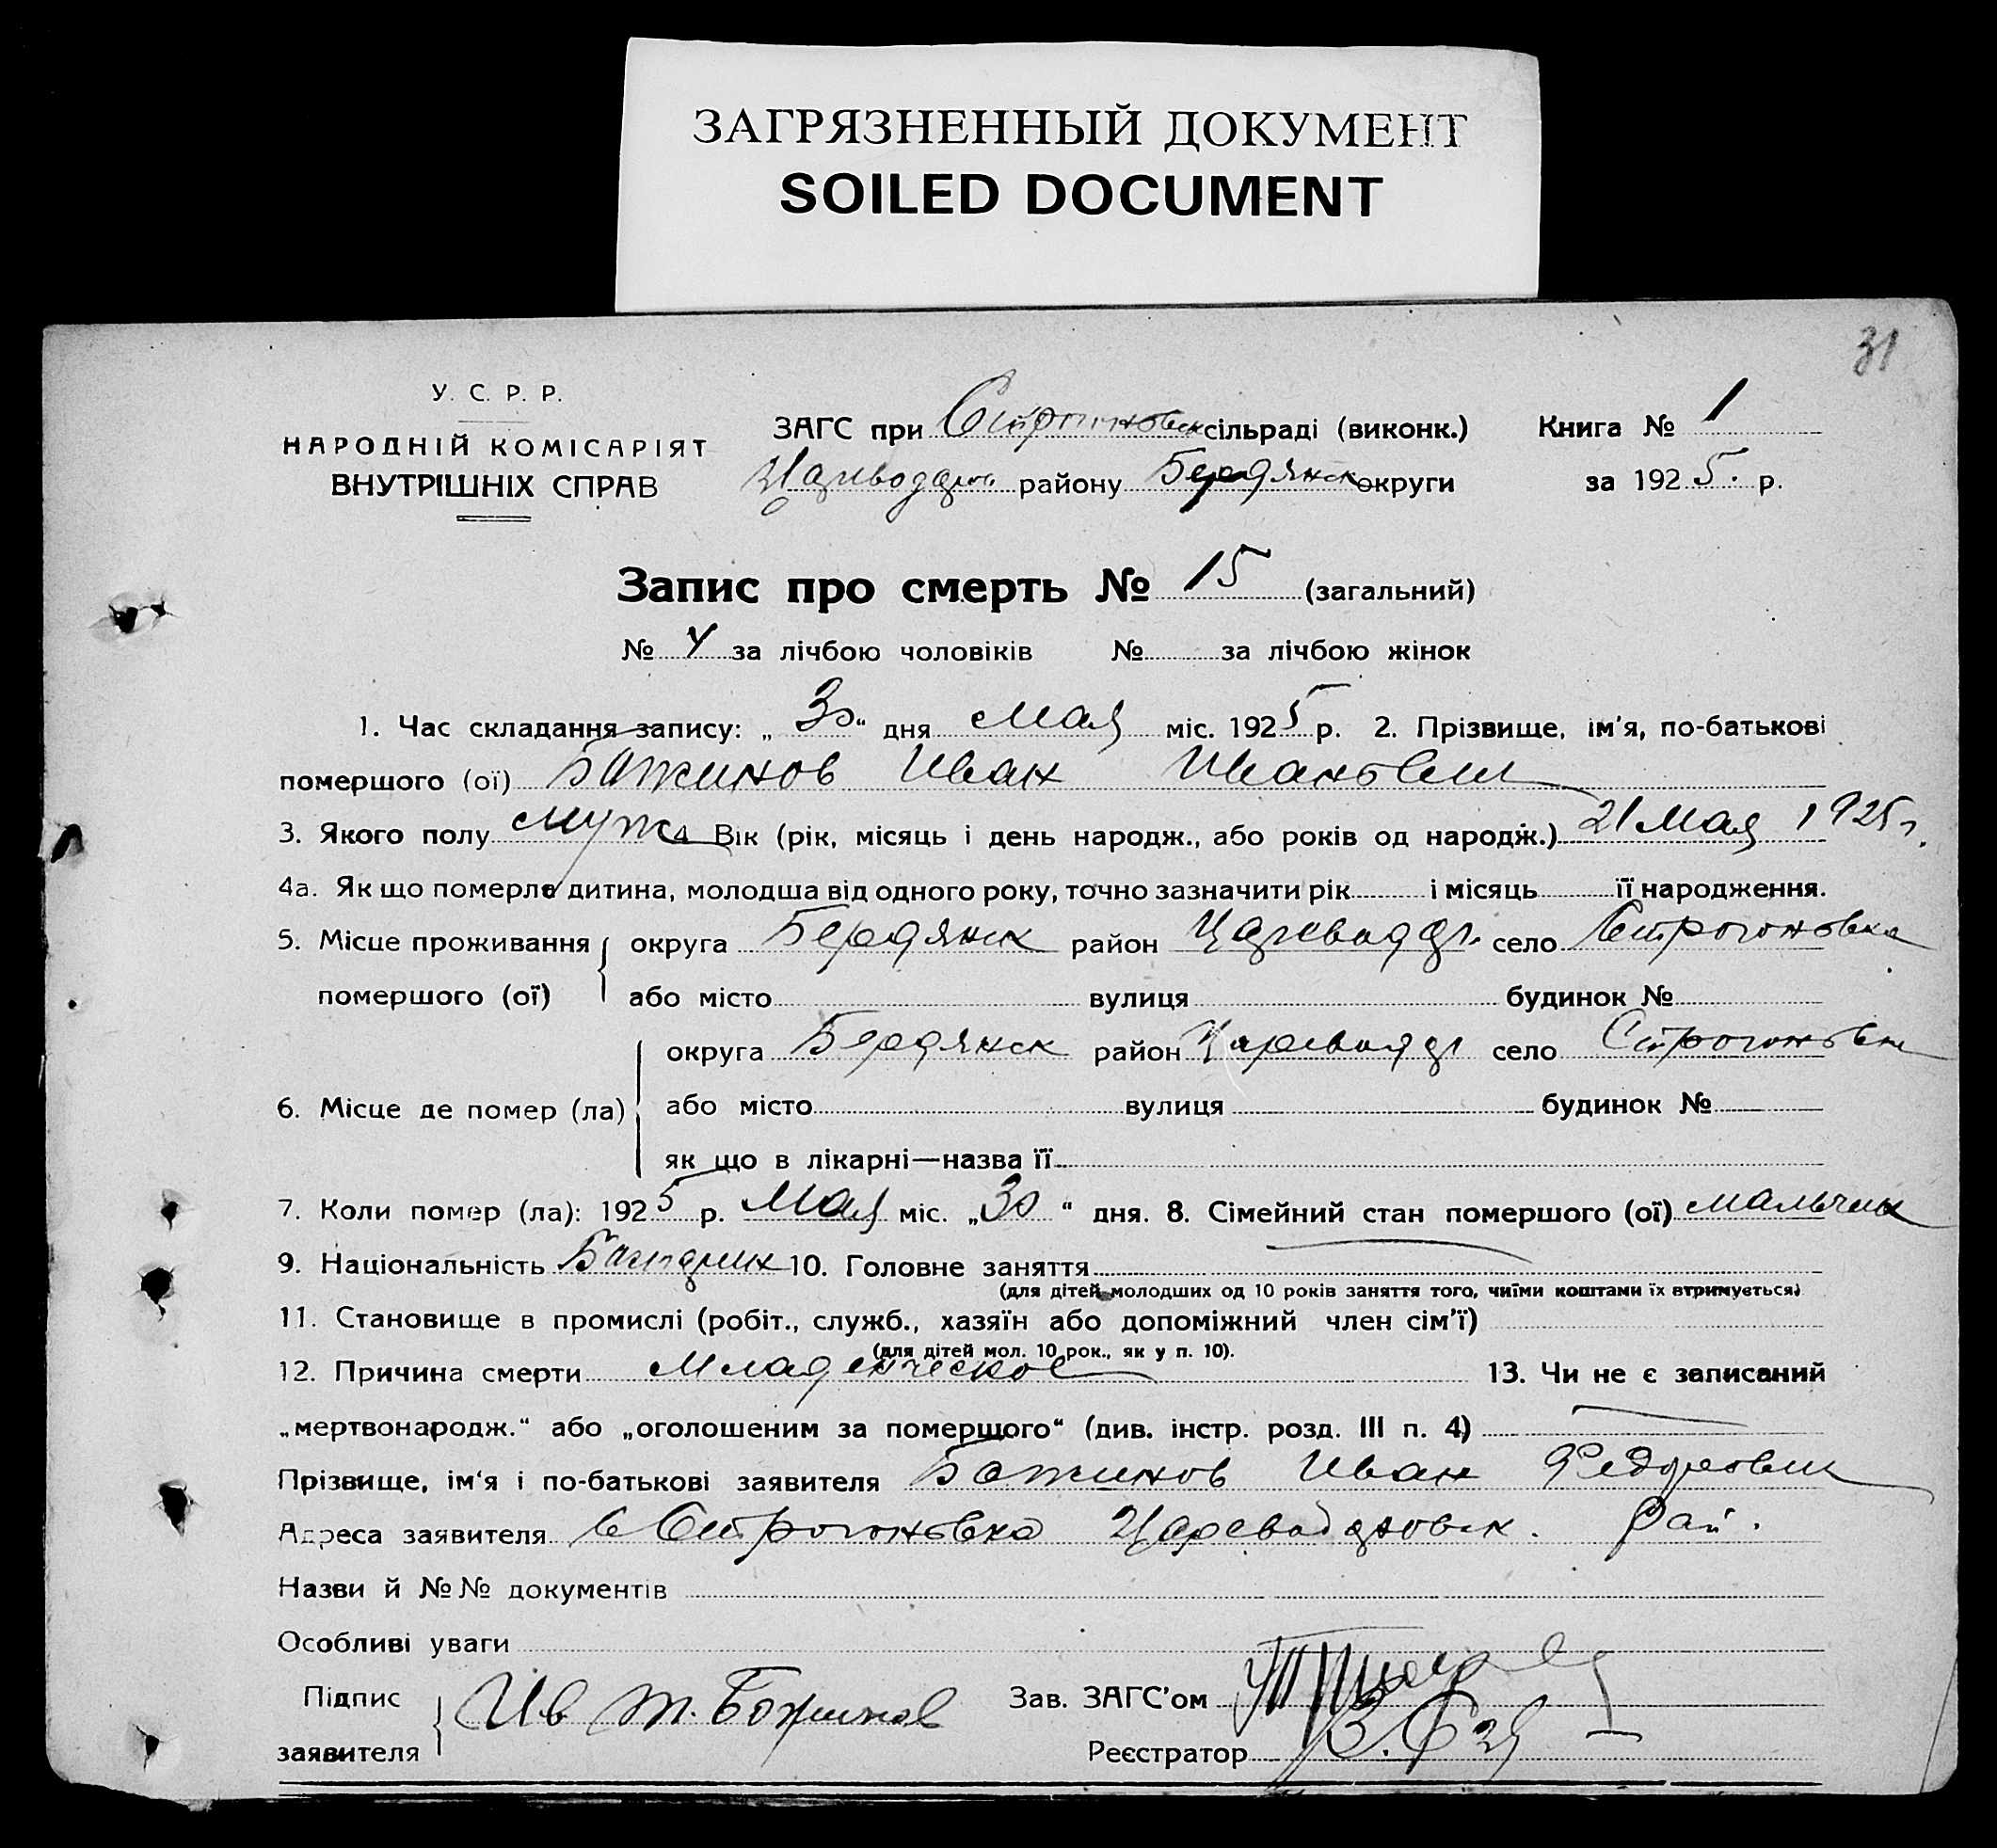 ЗАГРЯЗНЕННЫЙ ДОКУМЕНТ
SOILED DOCUMENT
31
У. С. Р. Р.
НАРОДНІЙ КОМІСАРІЯТ
ВНУТРІШНІХ СПРАВ
ЗАГС при Строгоновск сільраді (виконк.) Книга № 1
району Бердянск округи за 1925. р.
Запис про смерть № 15 (загальний)
№ 4 за лічбою чоловіків № за лічбою жінок
1. Час складання запису: „30“ дня Мая міс. 1925 р. 2. Прізвище, ім'я, по-батькові
помершого (ої) Бажинов Иван Иванович
3. Якого полу муж 4 Вік (рік, місяць і день народж., або років од народж.) 21 Мая 1925 г.
4а. Як що померла дитина, молодша від одного року, точно зазначити рік і місяць її народження.
5. Місце проживання округа Бердянск район Царевод село Строгоновка
помершого (ої) або місто вулиця будинок №
округа Бердянск район село Строгоновка
6. Місце де помер (ла) або місто вулиця будинок №
як що в лікарні—назва її
7. Коли помер (ла): 1925 р. Мая міс. „30“ дня. 8. Сімейний стан помершого (ої) мальчик
9. Національність Болгарин 10. Головне заняття
(для дітей молодших од 10 років заняття того, чиїми коштами їх втримується)
11. Становище в промислі (робіт., служб., хазяїн або допоміжний член сім'ї)
(для дітей мол. 10 рок., як у п. 10).
12. Причина смерти Младенческое 13. Чи не є записаний
„мертвонародж.“ або „оголошеним за померщого“ (див. інстр. розд. III п. 4)
Прізвище, ім'я і по-батькові заявителя Бажинов Иван Федорович
Адреса заявителя с Строгоновка Царевод Рай.
Назви й №№ документів
Особливі уваги
Підпис Ив Божинов Зав. ЗАГС'ом
заявителя Реєстратор